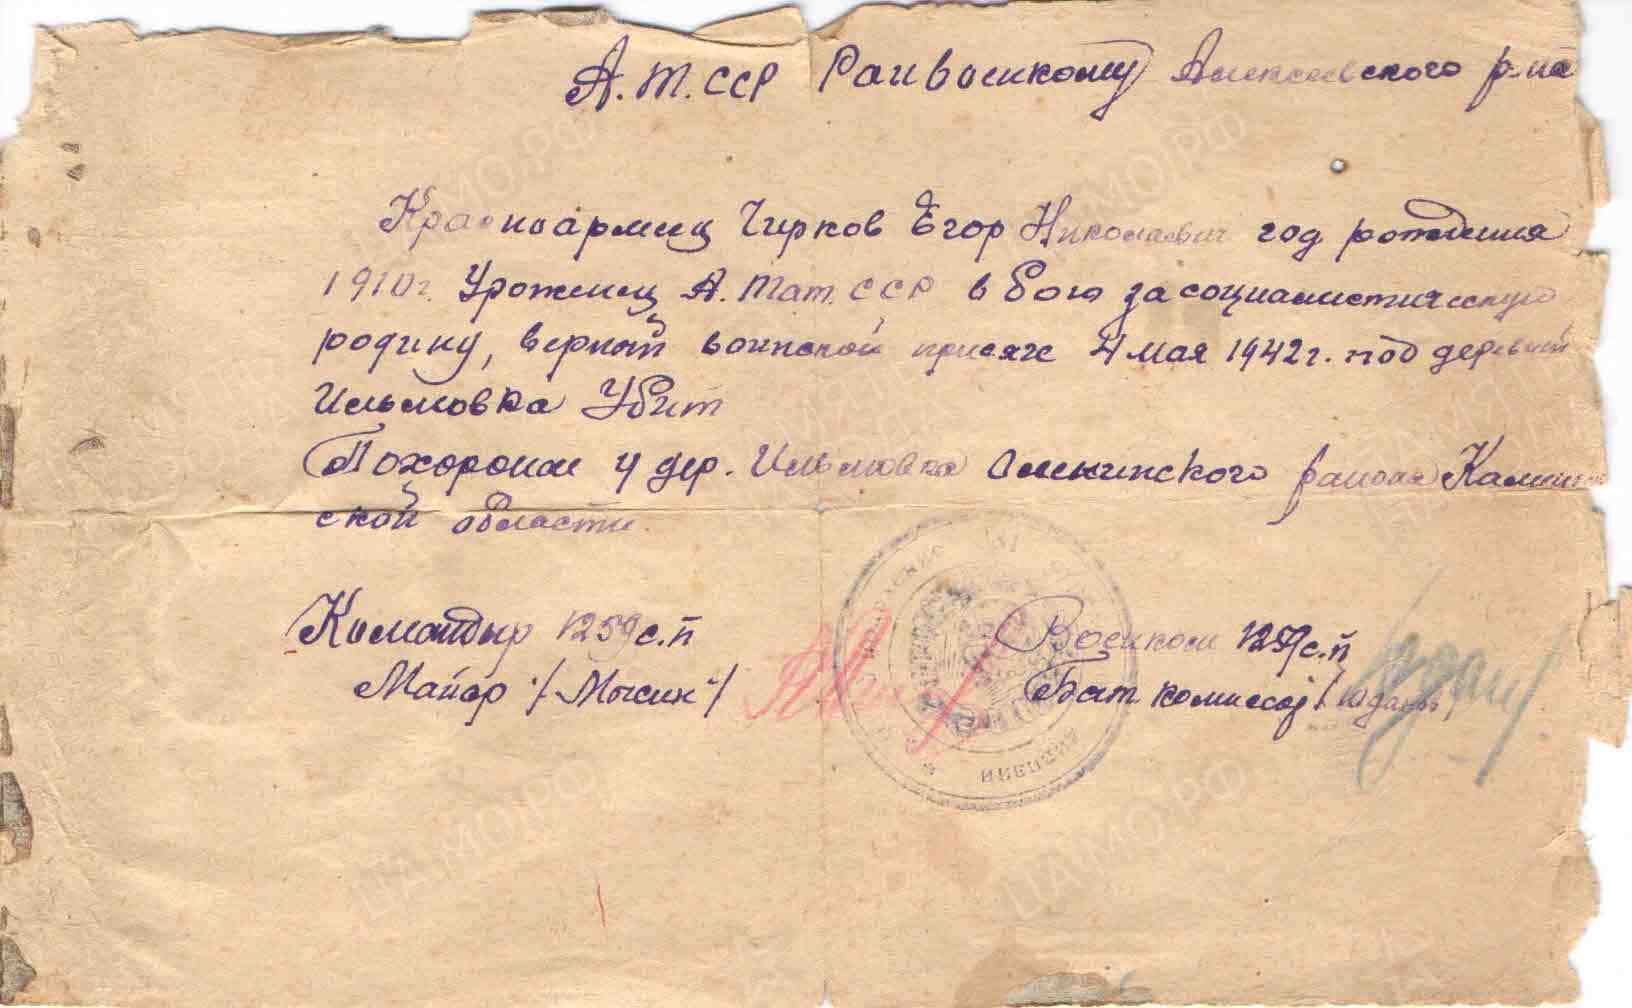 А.Т.ССР Райвоенкому Алексеевского р-на
Красноармеец Чирков Егор Николаевич год рождения
1910г. Уроженец А.Тат.ССР в бою за социалистическую
родину, верный воинской присяге 4 мая 1942г. под деревней
Ильмовка Убит
Похоронен у дер. Ильмовка Оленинского района Калинин
ской области.
Командир 1259 с.п Военком 1259 с.п
Майор /Мысин/ Бат комиссар /Юдань/
ЦАМО.РФ